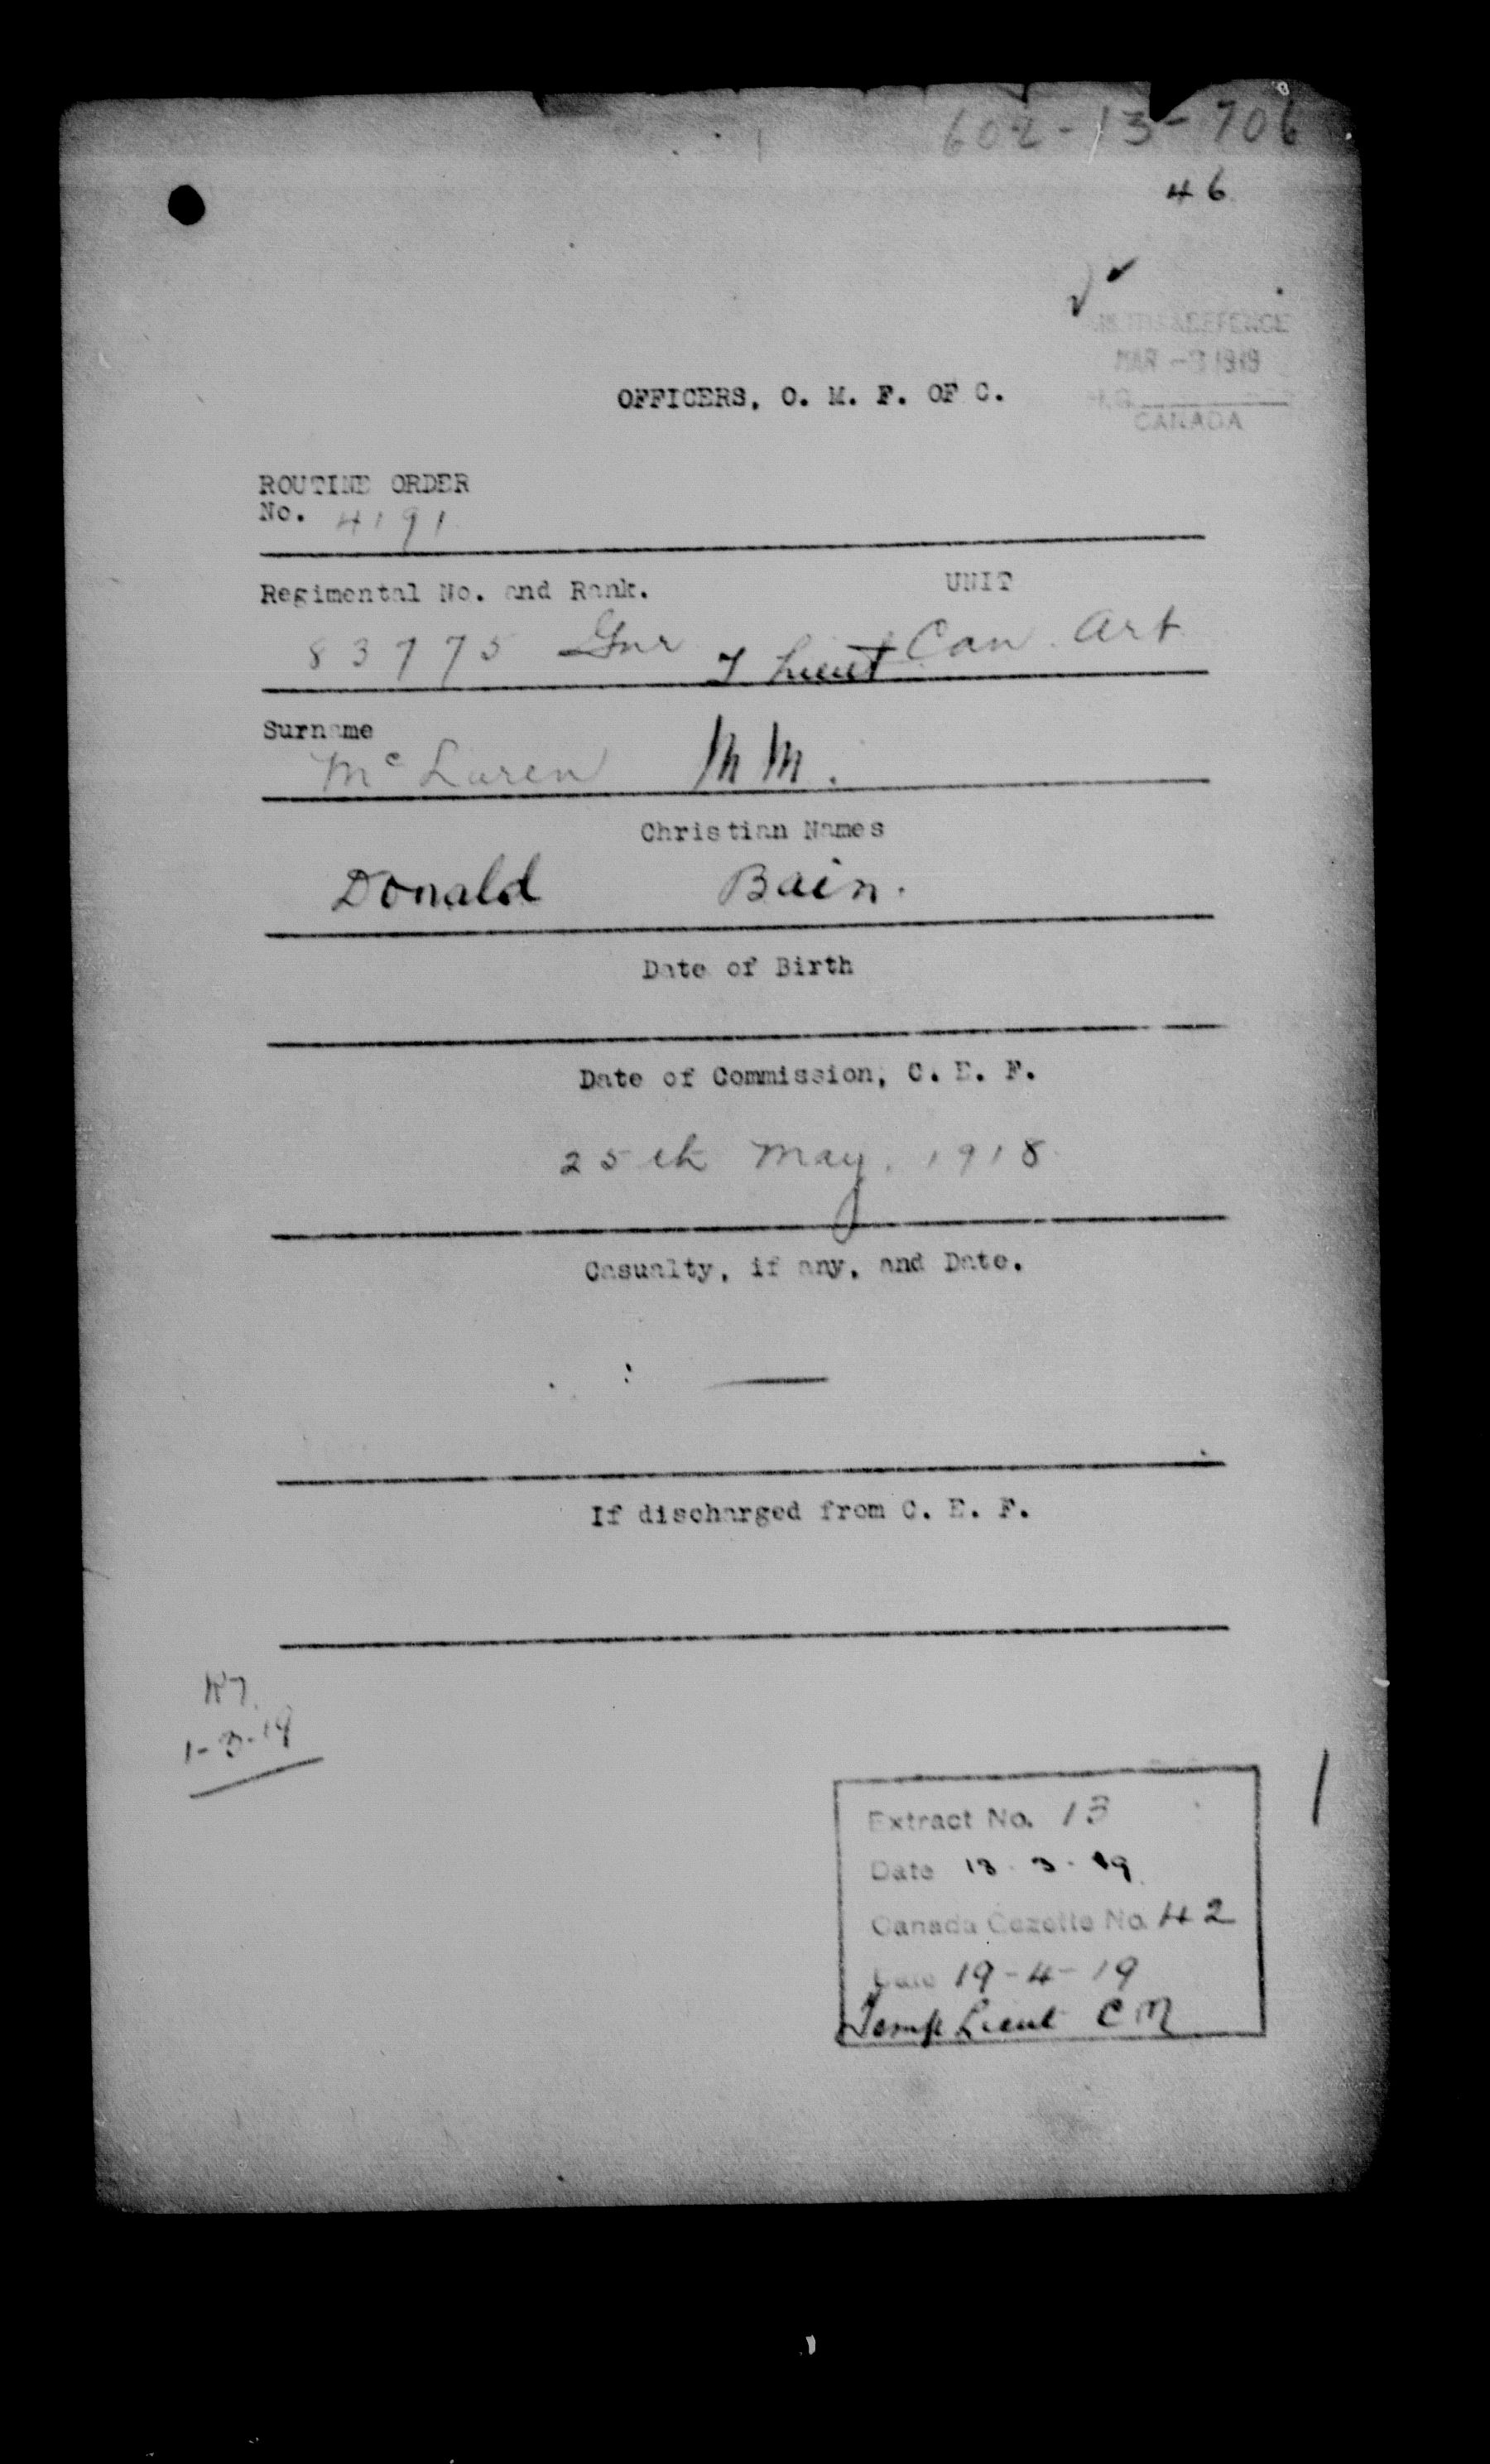 602-13-706
46
MILITIA & DEFENCE
MAR -3 1919
H.Q.
CANADA
OFFICERS, O. M. F. OF C.
ROUTINE ORDER
No. 4191
Regimental No. and Rank. UNIT
83775 Gnr T Lieut Can. Art
Surname
McLaren MM.
Christian Names
Donald Bain.
Date of Birth
Date of Commission, C. E. F.
25th May, 1918
Casualty, if any, and Date.
—
If discharged from C. E. F.
1-3-19
Extract No. 13
Date 13-3-19
Canada Gazette No. 42
Date 19-4-19
Temp Lieut CM